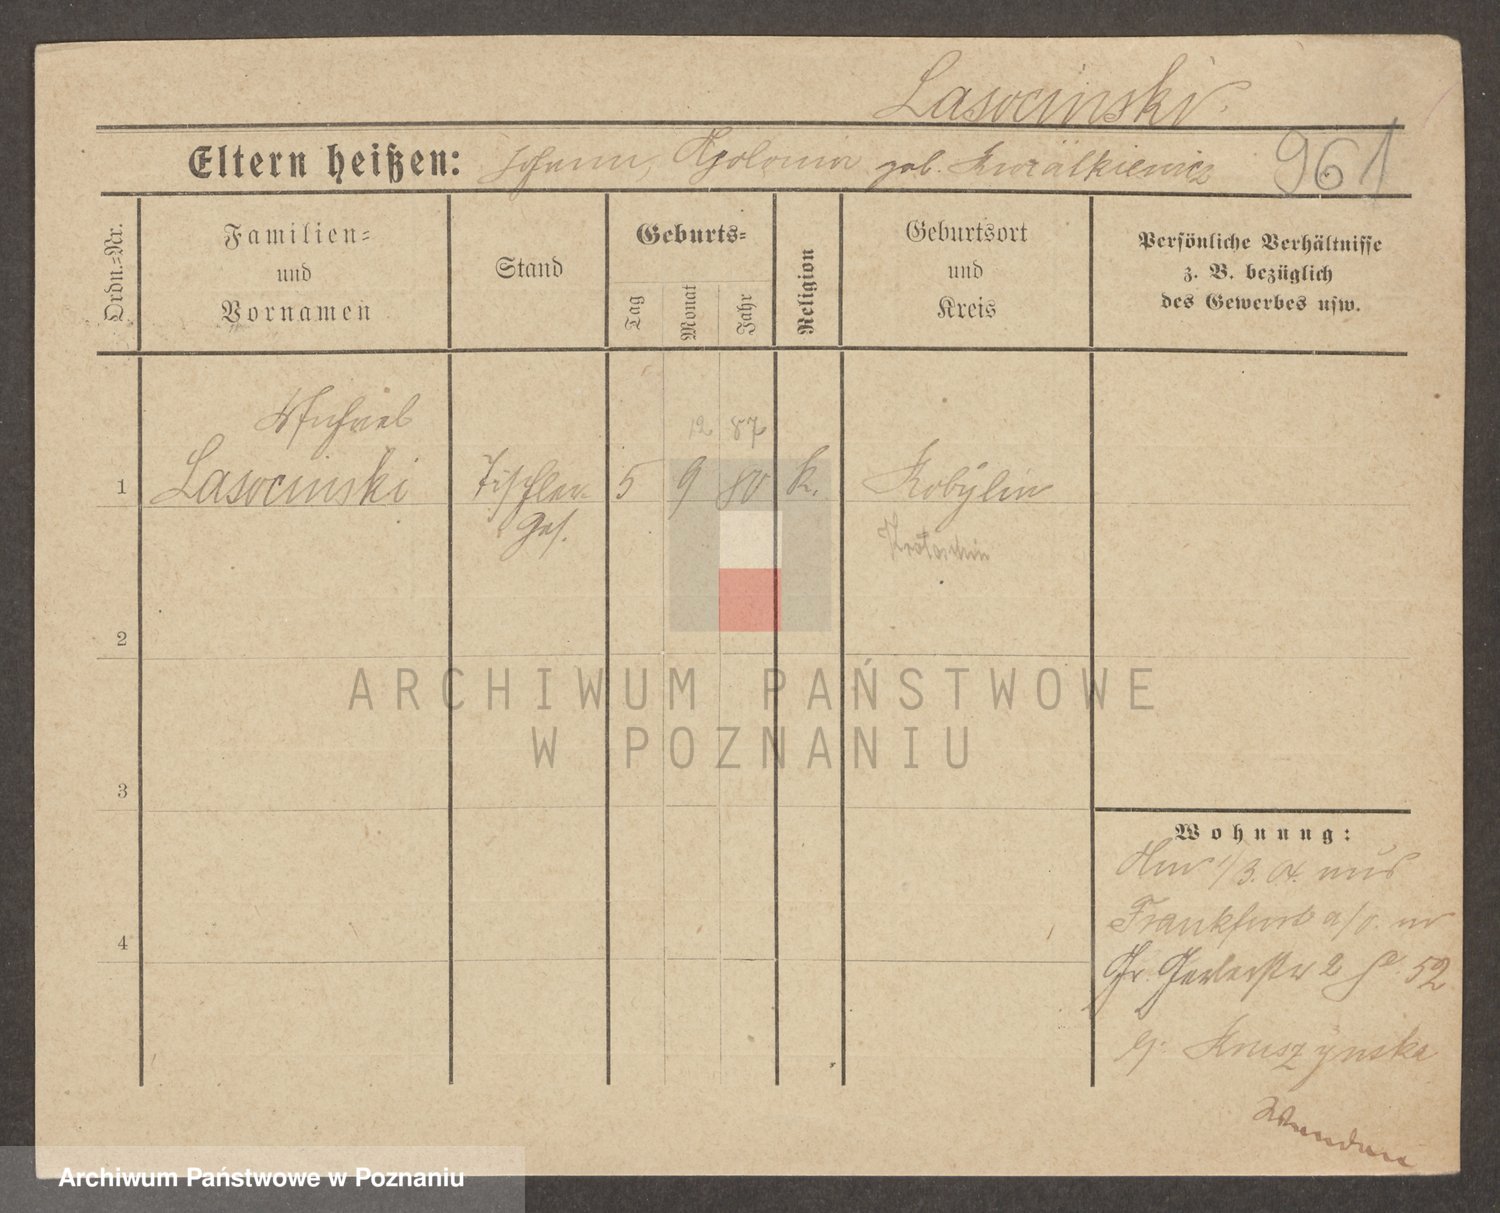 Lasocinski
Eltern heißen: Johann, Apolonia geb.
961
Ordn.-Nr.
Familien-
und
Vornamen
Stand
Geburts-
Tag
Monat
Jahr
Religion
Geburtsort
und
Kreis
Persönliche Verhältnisse
z. B. bezüglich
des Gewerbes usw.
Michael
12 87
1 Lasocinski Tischler- 5 9 80 k. Kobylin
ges.
Krotoschin
2
ARCHIWUM PAŃSTWOWE
W POZNANIU
3
Wohnung:
1/3. 04. aus
Frankfurt a/O. in
Gr. Gerberstr 2 52
b/. Kruszynska
4
Archiwum Państwowe w Poznaniu